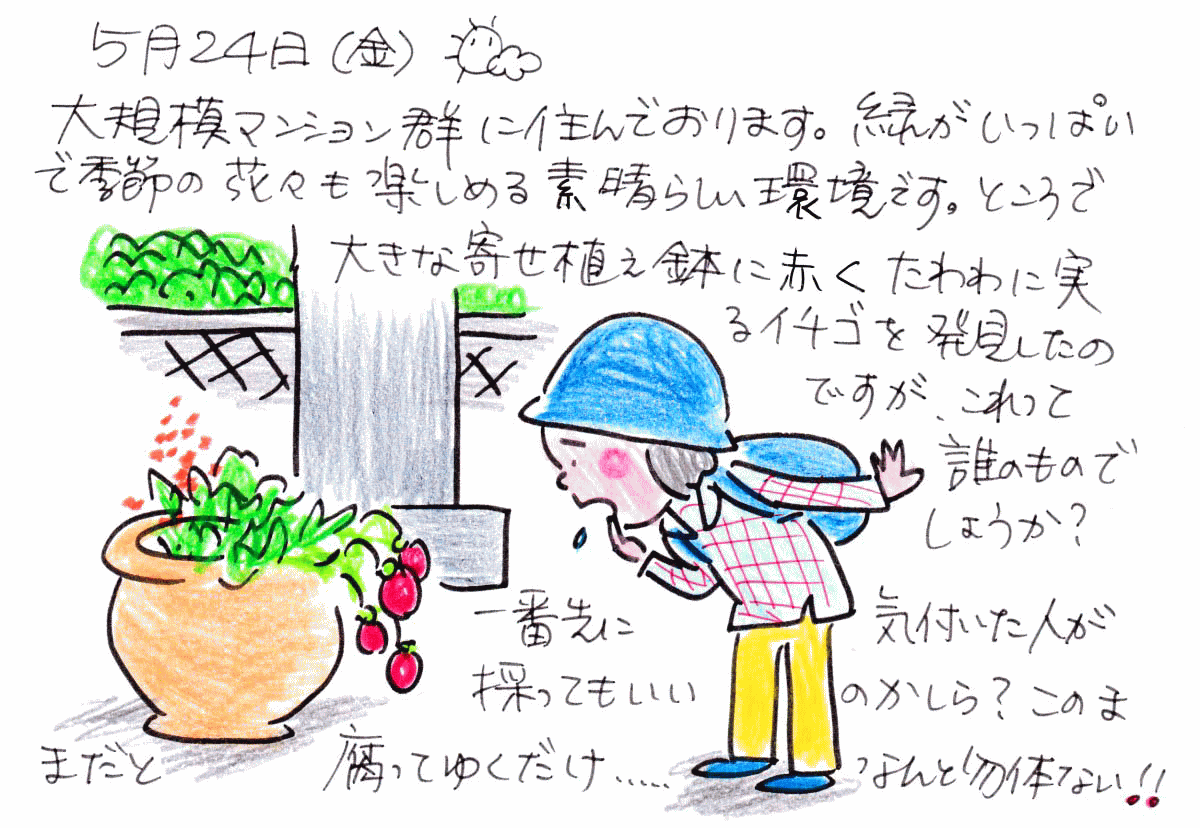 5月24日(金)
大規模マンション群に住んでおります。緑がいっぱい
で季節の花々も楽しめる素晴らしい環境です。ところで
大きな寄せ植え鉢に赤くたわわに実
るイチゴを発見したの
ですが、これって
誰のもので
しょうか?
一番先に気付いた人が
採ってもいいのかしら?このま
まだと腐ってゆくだけ……なんと勿体ない!!